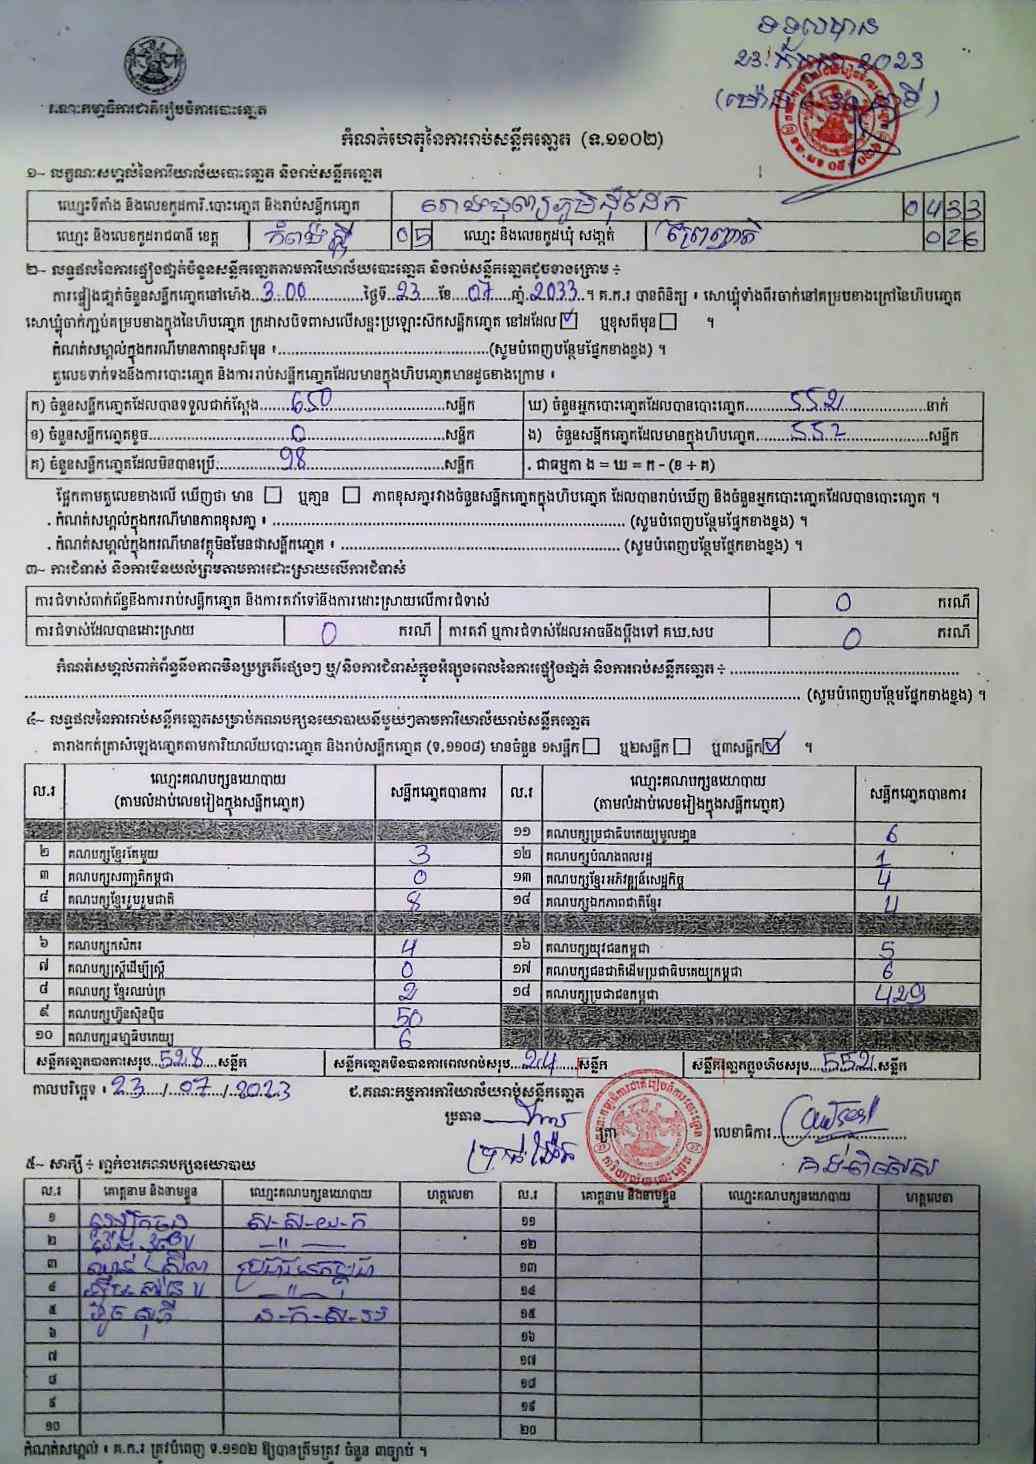 ទទួលបាន
23
2023
គណៈកម្មាធិការជាតិរៀបចំការបោះឆ្នោត
កំណត់ហេតុនៃការរាប់សន្លឹកឆ្នោត (ទ.១១០២)
១~ លក្ខណៈសម្គាល់នៃការិយាល័យបោះឆ្នោត និងរាប់សន្លឹកឆ្នោត
ឈ្មោះទីតាំង និងលេខកូដការិ.បោះឆ្នោត និងរាប់សន្លឹកឆ្នោត 0433
ឈ្មោះ និងលេខកូដរាជធានី ខេត្ត កំពង់ស្ពឺ 05 ឈ្មោះ និងលេខកូដឃុំ សង្កាត់ 026
២~ លទ្ធផលនៃការផ្ទៀងផ្ទាត់ចំនួនសន្លឹកឆ្នោតតាមការិយាល័យបោះឆ្នោត និងរាប់សន្លឹកឆ្នោតដូចខាងក្រោម ÷
ការផ្ទៀងផ្ទាត់ចំនួនសន្លឹកឆ្នោតនៅម៉ោង 3.00 ថ្ងៃទី 23 ខែ 07 ឆ្នាំ 2033 ។ គ.ក.រ បានពិនិត្យ ៖ សោឃ្មុំទាំងពីរចាក់នៅគម្របខាងក្រៅនៃហិបឆ្នោត
សោឃ្មុំចាក់ភ្ជាប់គម្របខាងក្នុងនៃហិបឆ្នោត ក្រដាសបិទពាសលើសន្ទះប្រឡោះសិកសន្លឹកឆ្នោត នៅដដែល ☑ ឬខុសពីមុន ☐ ។
កំណត់សម្គាល់ក្នុងករណីមានភាពខុសពីមុន ៖ (សូមបំពេញបន្ថែមផ្នែកខាងខ្នង) ។
តួលេខទាក់ទងនឹងការបោះឆ្នោត និងការរាប់សន្លឹកឆ្នោតដែលមានក្នុងហិបឆ្នោតមានដូចខាងក្រោម ៖
ក) ចំនួនសន្លឹកឆ្នោតដែលបានទទួលជាក់ស្តែង 650 សន្លឹក ឃ) ចំនួនអ្នកបោះឆ្នោតដែលបានបោះឆ្នោត 552 នាក់
ខ) ចំនួនសន្លឹកឆ្នោតខូច 0 សន្លឹក ង) ចំនួនសន្លឹកឆ្នោតដែលមានក្នុងហិបឆ្នោត 552 សន្លឹក
គ) ចំនួនសន្លឹកឆ្នោតដែលមិនបានប្រើ 98 សន្លឹក . ជាធម្មតា ង = ឃ = ក - (ខ + គ)
ផ្អែកតាមតួលេខខាងលើ ឃើញថា មាន ☐ ឬគ្មាន ☐ ភាពខុសគ្នារវាងចំនួនសន្លឹកឆ្នោតក្នុងហិបឆ្នោត ដែលបានរាប់ឃើញ និងចំនួនអ្នកបោះឆ្នោតដែលបានបោះឆ្នោត ។
. កំណត់សម្គាល់ក្នុងករណីមានភាពខុសគ្នា ៖ (សូមបំពេញបន្ថែមផ្នែកខាងខ្នង) ។
. កំណត់សម្គាល់ក្នុងករណីមានវត្ថុមិនមែនជាសន្លឹកឆ្នោត ៖ (សូមបំពេញបន្ថែមផ្នែកខាងខ្នង) ។
៣~ ការជំទាស់ និងការមិនយល់ព្រមតាមការដោះស្រាយលើការជំទាស់
ការជំទាស់ពាក់ព័ន្ធនឹងការរាប់សន្លឹកឆ្នោត និងការតវ៉ាទៅនឹងការដោះស្រាយលើការជំទាស់ 0 ករណី
ការជំទាស់ដែលបានដោះស្រាយ 0 ករណី ការតវ៉ា ឬការជំទាស់ដែលអាចនឹងប្តឹងទៅ គឃ.សប 0 ករណី
កំណត់សម្គាល់ពាក់ព័ន្ធនឹងភាពមិនប្រក្រតីផ្សេងៗ ឬ/និងការជំទាស់ក្នុងអំឡុងពេលនៃការផ្ទៀងផ្ទាត់ និងការរាប់សន្លឹកឆ្នោត ÷
(សូមបំពេញបន្ថែមផ្នែកខាងខ្នង) ។
៤~ លទ្ធផលនៃការរាប់សន្លឹកឆ្នោតសម្រាប់គណបក្សនយោបាយនីមួយៗតាមការិយាល័យរាប់សន្លឹកឆ្នោត
តារាងកត់ត្រាសំឡេងឆ្នោតតាមការិយាល័យបោះឆ្នោត និងរាប់សន្លឹកឆ្នោត (ទ.១១០៨) មានចំនួន ១សន្លឹក ☐ ឬ២សន្លឹក ☐ ឬ៣សន្លឹក ☑ ។
ល.រ ឈ្មោះគណបក្សនយោបាយ (តាមលំដាប់លេខរៀងក្នុងសន្លឹកឆ្នោត) សន្លឹកឆ្នោតបានការ ល.រ ឈ្មោះគណបក្សនយោបាយ (តាមលំដាប់លេខរៀងក្នុងសន្លឹកឆ្នោត) សន្លឹកឆ្នោតបានការ
១១ គណបក្សប្រជាធិបតេយ្យមូលដ្ឋាន 6
២ គណបក្សខ្មែរតែមួយ 3 ១២ គណបក្សបំណងពលរដ្ឋ 1
៣ គណបក្សសញ្ជាតិកម្ពុជា 0 ១៣ គណបក្សខ្មែរអភិវឌ្ឍន៍សេដ្ឋកិច្ច 4
៤ គណបក្សខ្មែររួបរួមជាតិ 8 ១៤ គណបក្សឯកភាពជាតិខ្មែរ 4
៦ គណបក្សកសិករ 4 ១៦ គណបក្សយុវជនកម្ពុជា 5
៧ គណបក្សស្ត្រីដើម្បីស្ត្រី 0 ១៧ គណបក្សជនជាតិដើមប្រជាធិបតេយ្យកម្ពុជា 6
៨ គណបក្ស ខ្មែរឈប់ក្រ 2 ១៨ គណបក្សប្រជាជនកម្ពុជា 429
៩ គណបក្សហ៊្វុនស៊ិនប៉ិច 50
១០ គណបក្សធម្មាធិបតេយ្យ 6
សន្លឹកឆ្នោតបានការសរុប 528 សន្លឹក សន្លឹកឆ្នោតមិនបានការពេលរាប់សរុប 24 សន្លឹក សន្លឹកឆ្នោតក្នុងហិបសរុប 552 សន្លឹក
កាលបរិច្ឆេទ ៖ 23/07/2023 ជ.គណៈកម្មការការិយាល័យរាប់សន្លឹកឆ្នោត
ប្រធាន ត្រា លេខាធិការ
៥~ សាក្សី ÷ ភ្នាក់ងារគណបក្សនយោបាយ
ល.រ គោត្តនាម និងនាមខ្លួន ឈ្មោះគណបក្សនយោបាយ ហត្ថលេខា ល.រ គោត្តនាម និងនាមខ្លួន ឈ្មោះគណបក្សនយោបាយ ហត្ថលេខា
១ ១១
២ ១២
៣ ១៣
៤ ១៤
៥ ១៥
៦ ១៦
៧ ១៧
៨ ១៨
៩ ១៩
១០ ២០
កំណត់សម្គាល់ ៖ គ.ក.រ ត្រូវបំពេញ ទ.១១០២ ឱ្យបានត្រឹមត្រូវ ចំនួន ៣ច្បាប់ ។